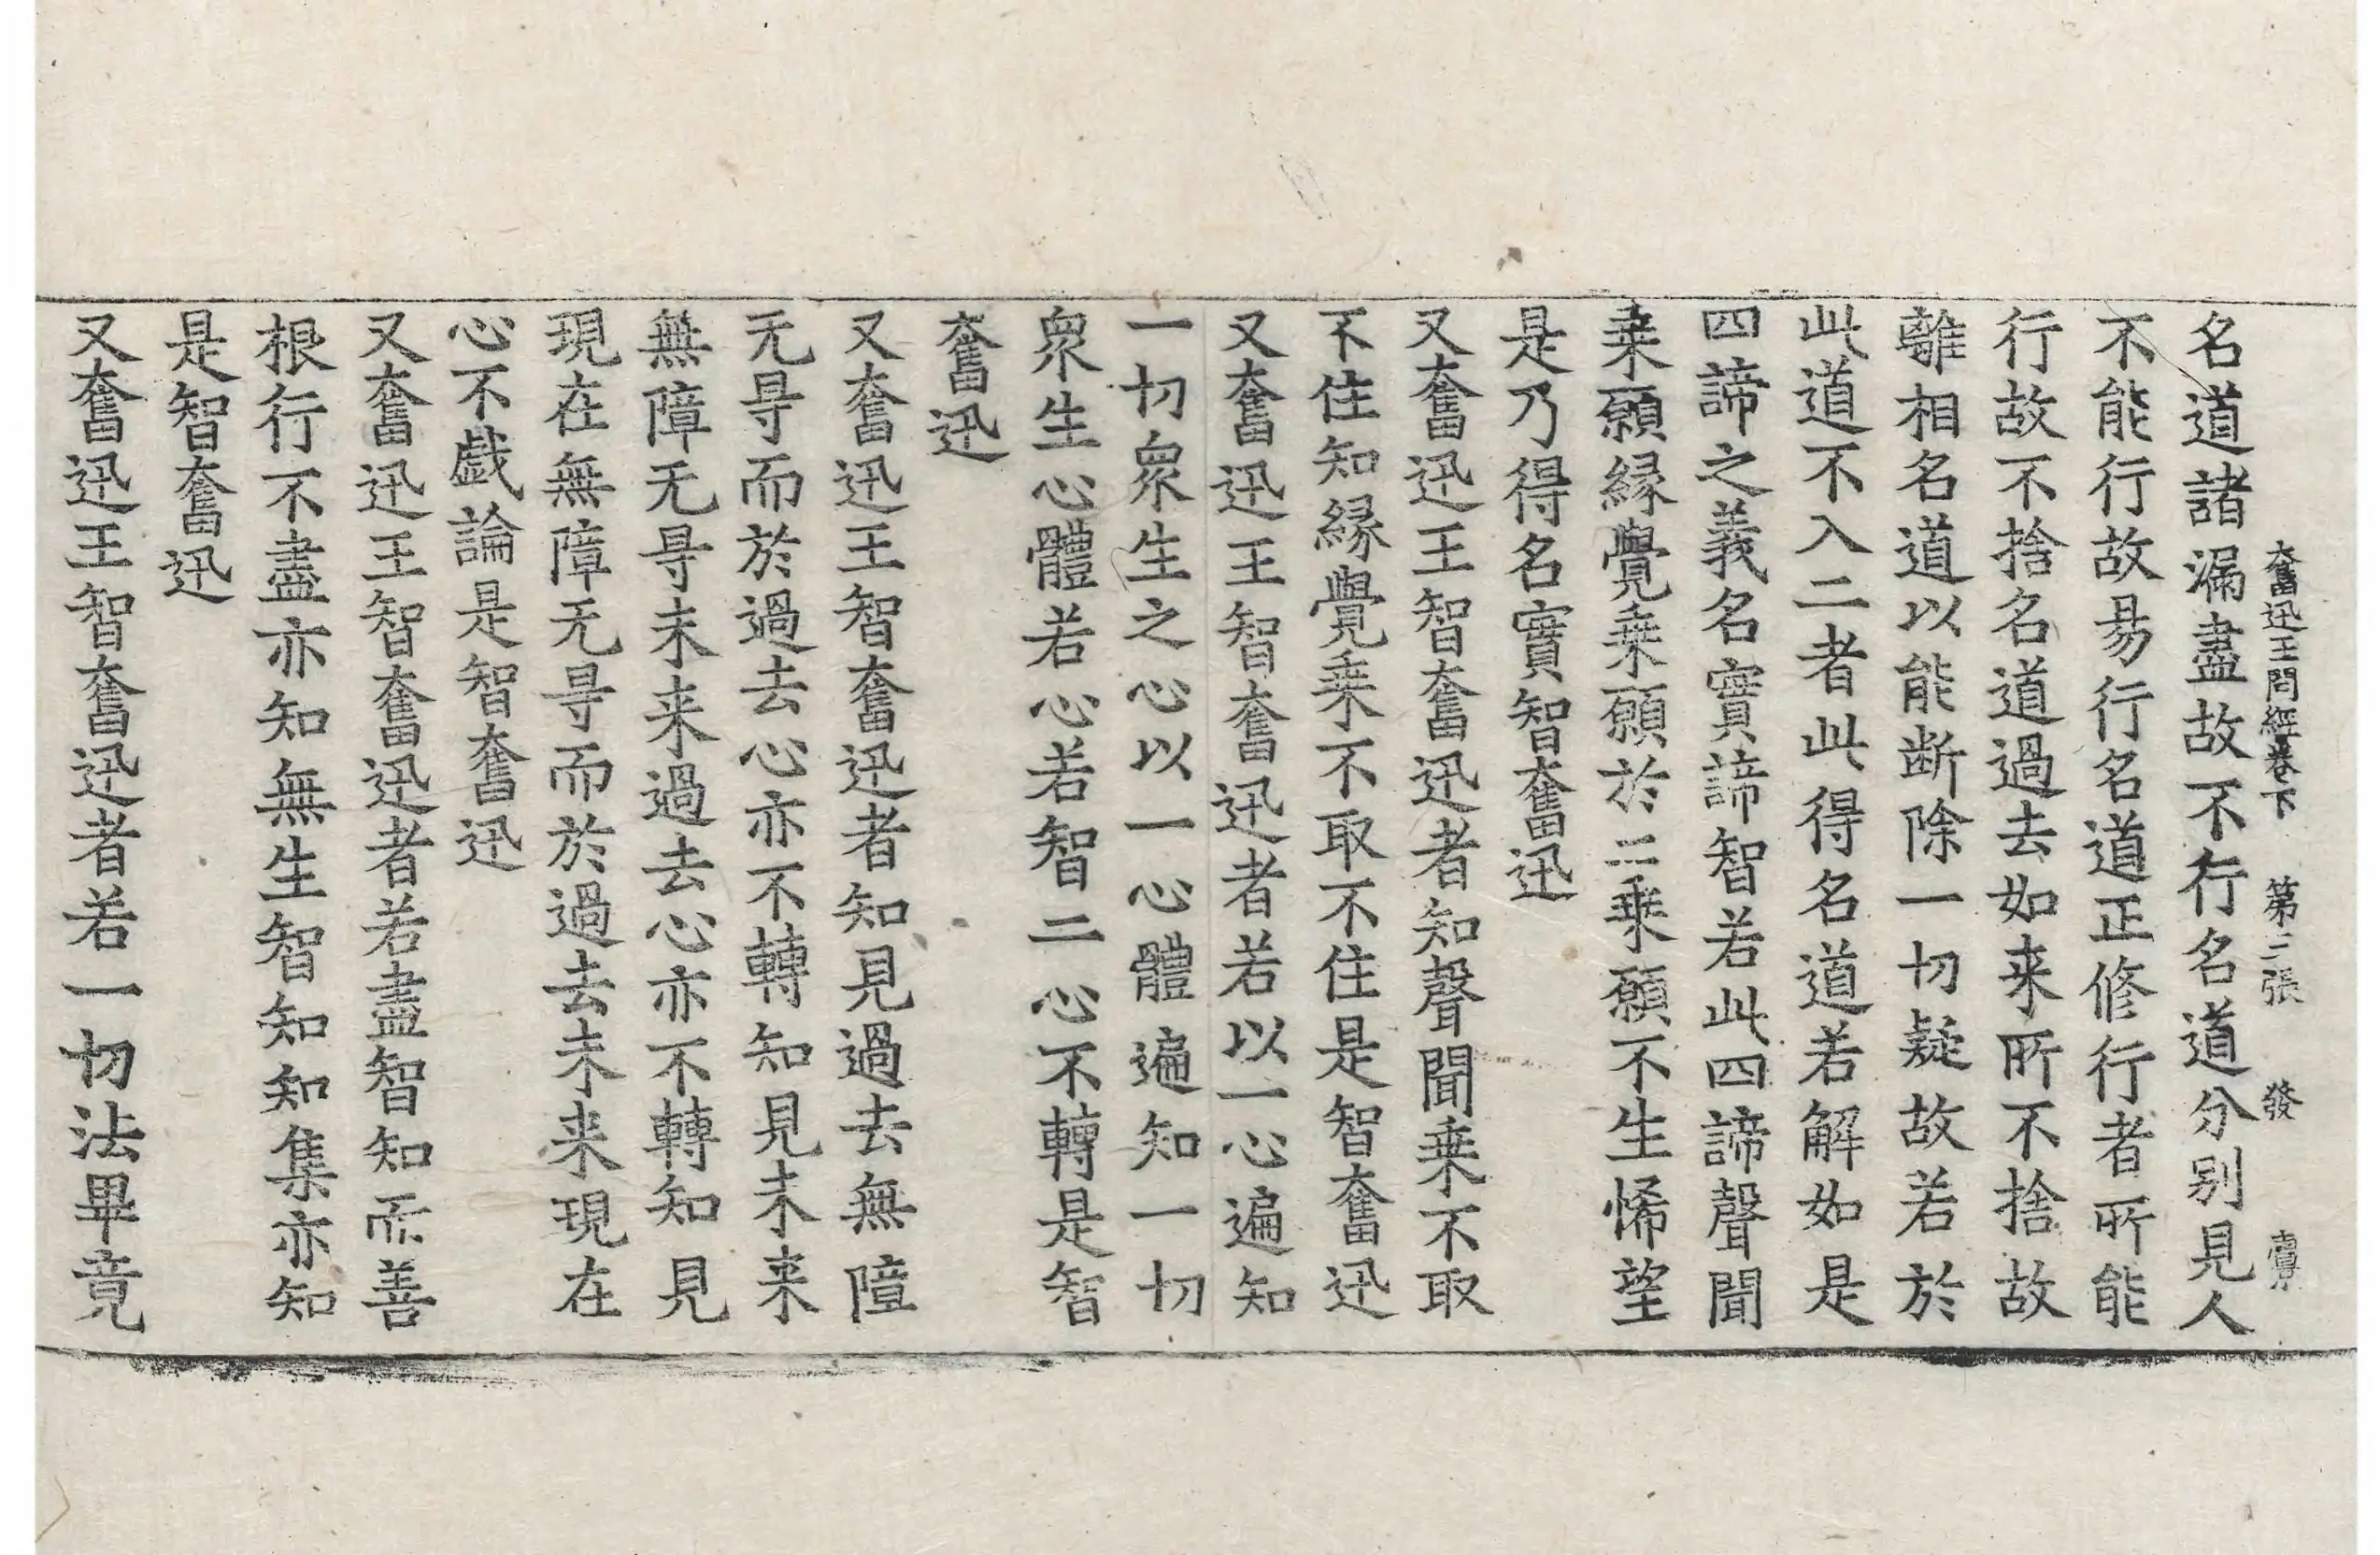 奮迅王問經卷下 第三張 發
名道諸漏盡故不行名道分别見人
不能行故易行名道正修行者所能
行故不捨名道過去如来所不捨故
離相名道以能断除一切疑故若於
此道不入二者此得名道若解如是
四諦之義名實諦智若此四諦聲聞
乗願縁覺乗願於二乗願不生悕望
是乃得名實智奮迅
又奮迅王智奮迅者知聲聞乗不取
不住知縁覺乗不取不住是智奮迅
又奮迅王智奮迅者若以一心遍知
一切衆生之心以一心體遍知一切
衆生心體若心若智二心不轉是智
奮迅
又奮迅王智奮迅者知見過去無障
无㝵而於過去心亦不轉知見未来
無障无㝵未来過去心亦不轉知見
現在無障无㝵而於過去未来現在
心不戯論是智奮迅
又奮迅王智奮迅者若盡智知而善
根行不盡亦知無生智知知集亦知
是智奮迅
又奮迅王智奮迅者若一切法畢竟